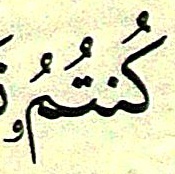 كُنتُمُ